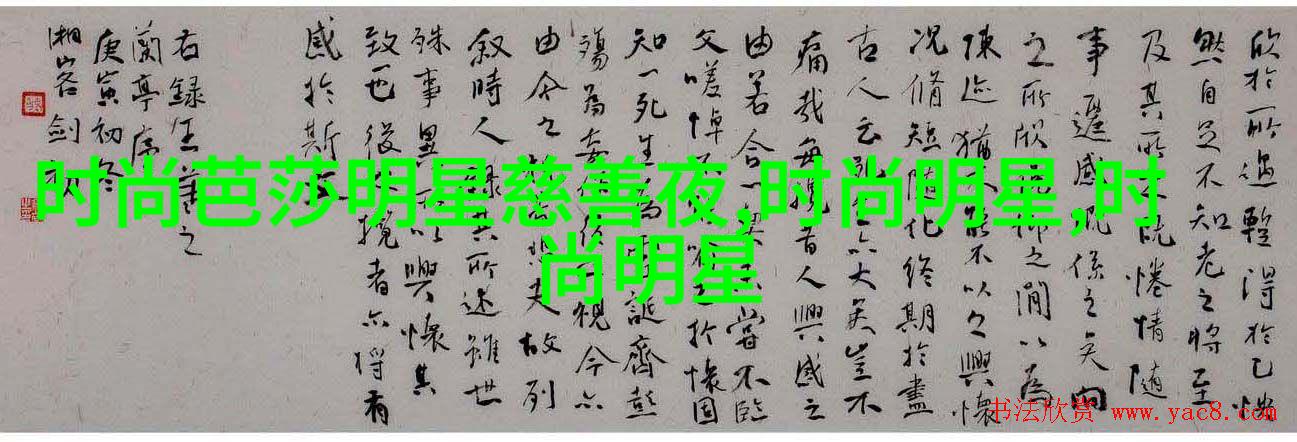 欣於所遇輒得於己快
然自足不知老之將至
及其所之既惓情隨
事遷感慨係之矣向
之所欣俛仰之間以為
陳迹猶不能不以之興懷
況脩短隨化終期於盡
古人云死生亦大矣豈不
痛哉每攬昔人興感之
由若合一契未嘗不臨
文嗟悼不能喻之於懷固
知一死生為虛誕齊彭
殤為妄作後之視今亦
由今之視昔悲夫故列
敘時人錄其所述雖世
殊事異所以興懷其
致一也後之攬者亦將有
感於斯文
右錄王羲之
蘭亭序
庚寅初冬
湘客劍秋
时尚芭莎明星慈善夜,时尚明星,时
尚明星
书法欣赏 www.yac8.com